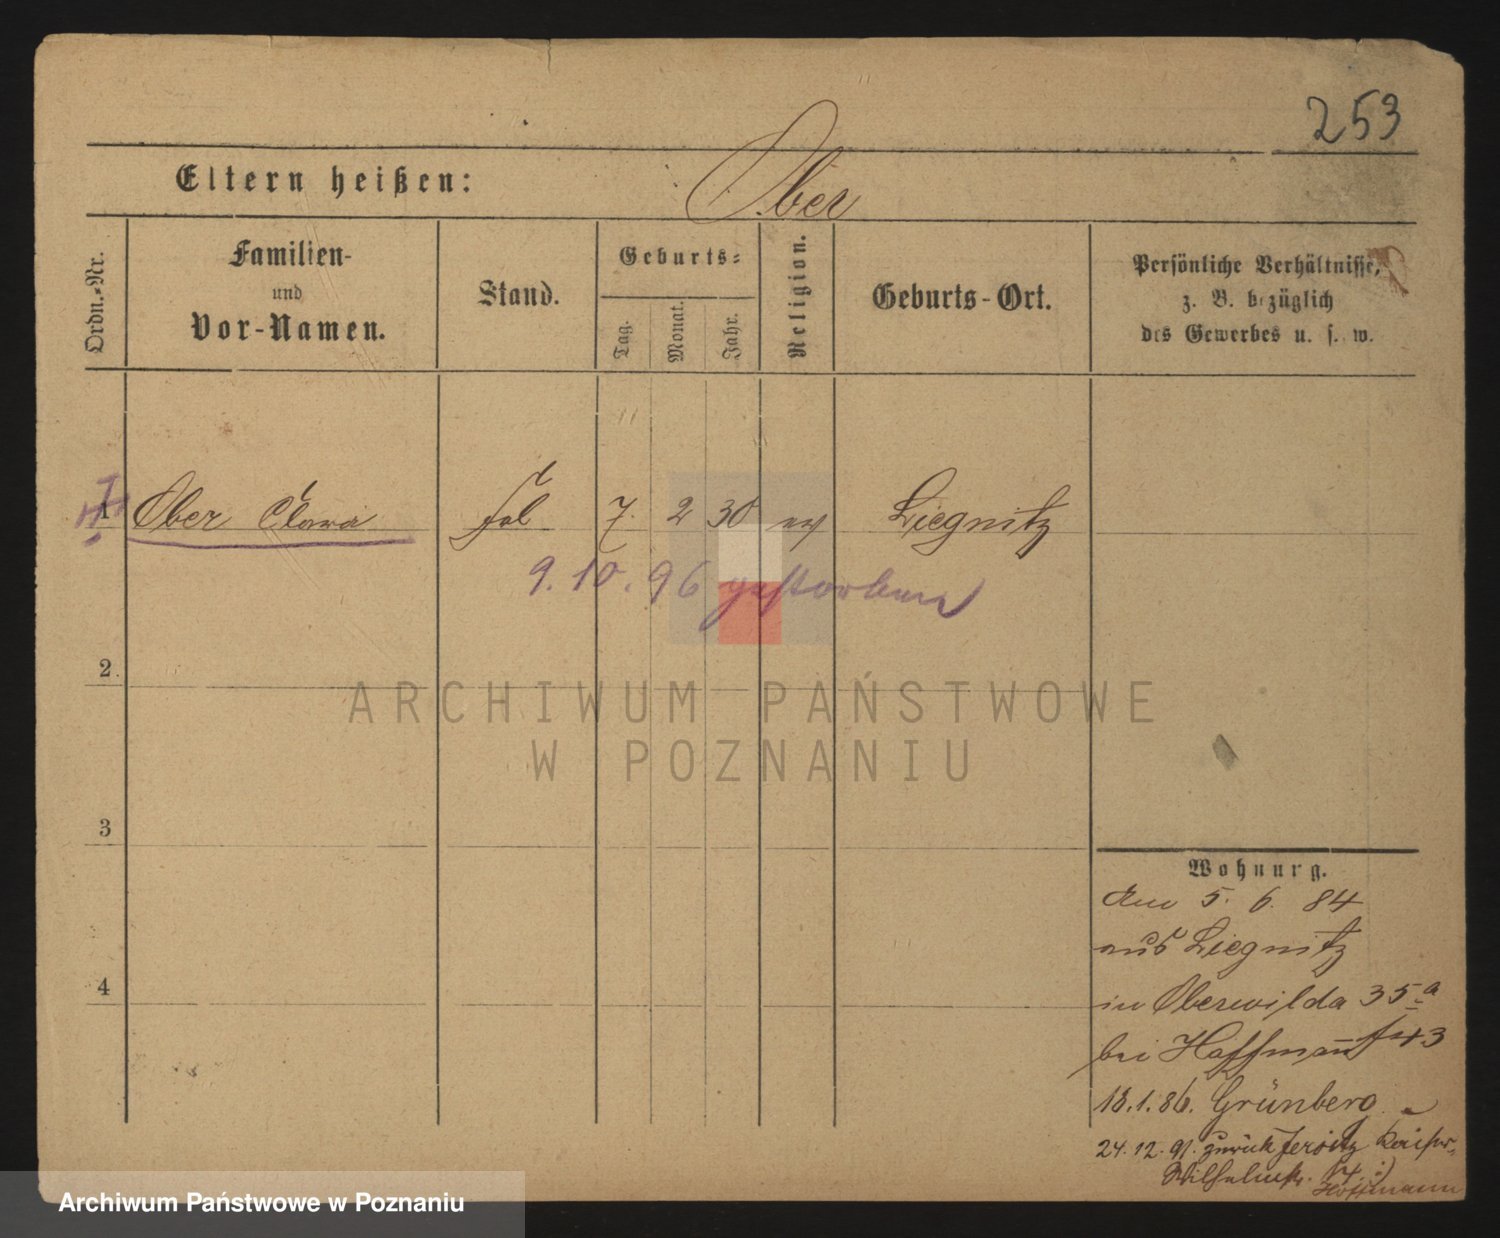 253
Eltern heißen: Ober
Ordn.-Nr.
Familien-
und
Vor-Namen.
Stand.
Geburts-
Tag.
Monat.
Jahr.
Religion.
Geburts-Ort.
Persönliche Verhältnisse,
z. B. bezüglich
des Gewerbes u. s. w.
1 Ober Clara 7. 2 30 ev Liegnitz
9. 10. 96 gestorben
2.
ARCHIWUM PAŃSTWOWE
W POZNANIU
3
4
Wohnung.
5. 6. 84
aus Liegnitz
in Oberwilda 35a
bei Hoffmann
18.1.86. Grünberg
24.12.91. zurück Jersitz Kaiser
Wilhelmstr.
Hoffmann
Archiwum Państwowe w Poznaniu